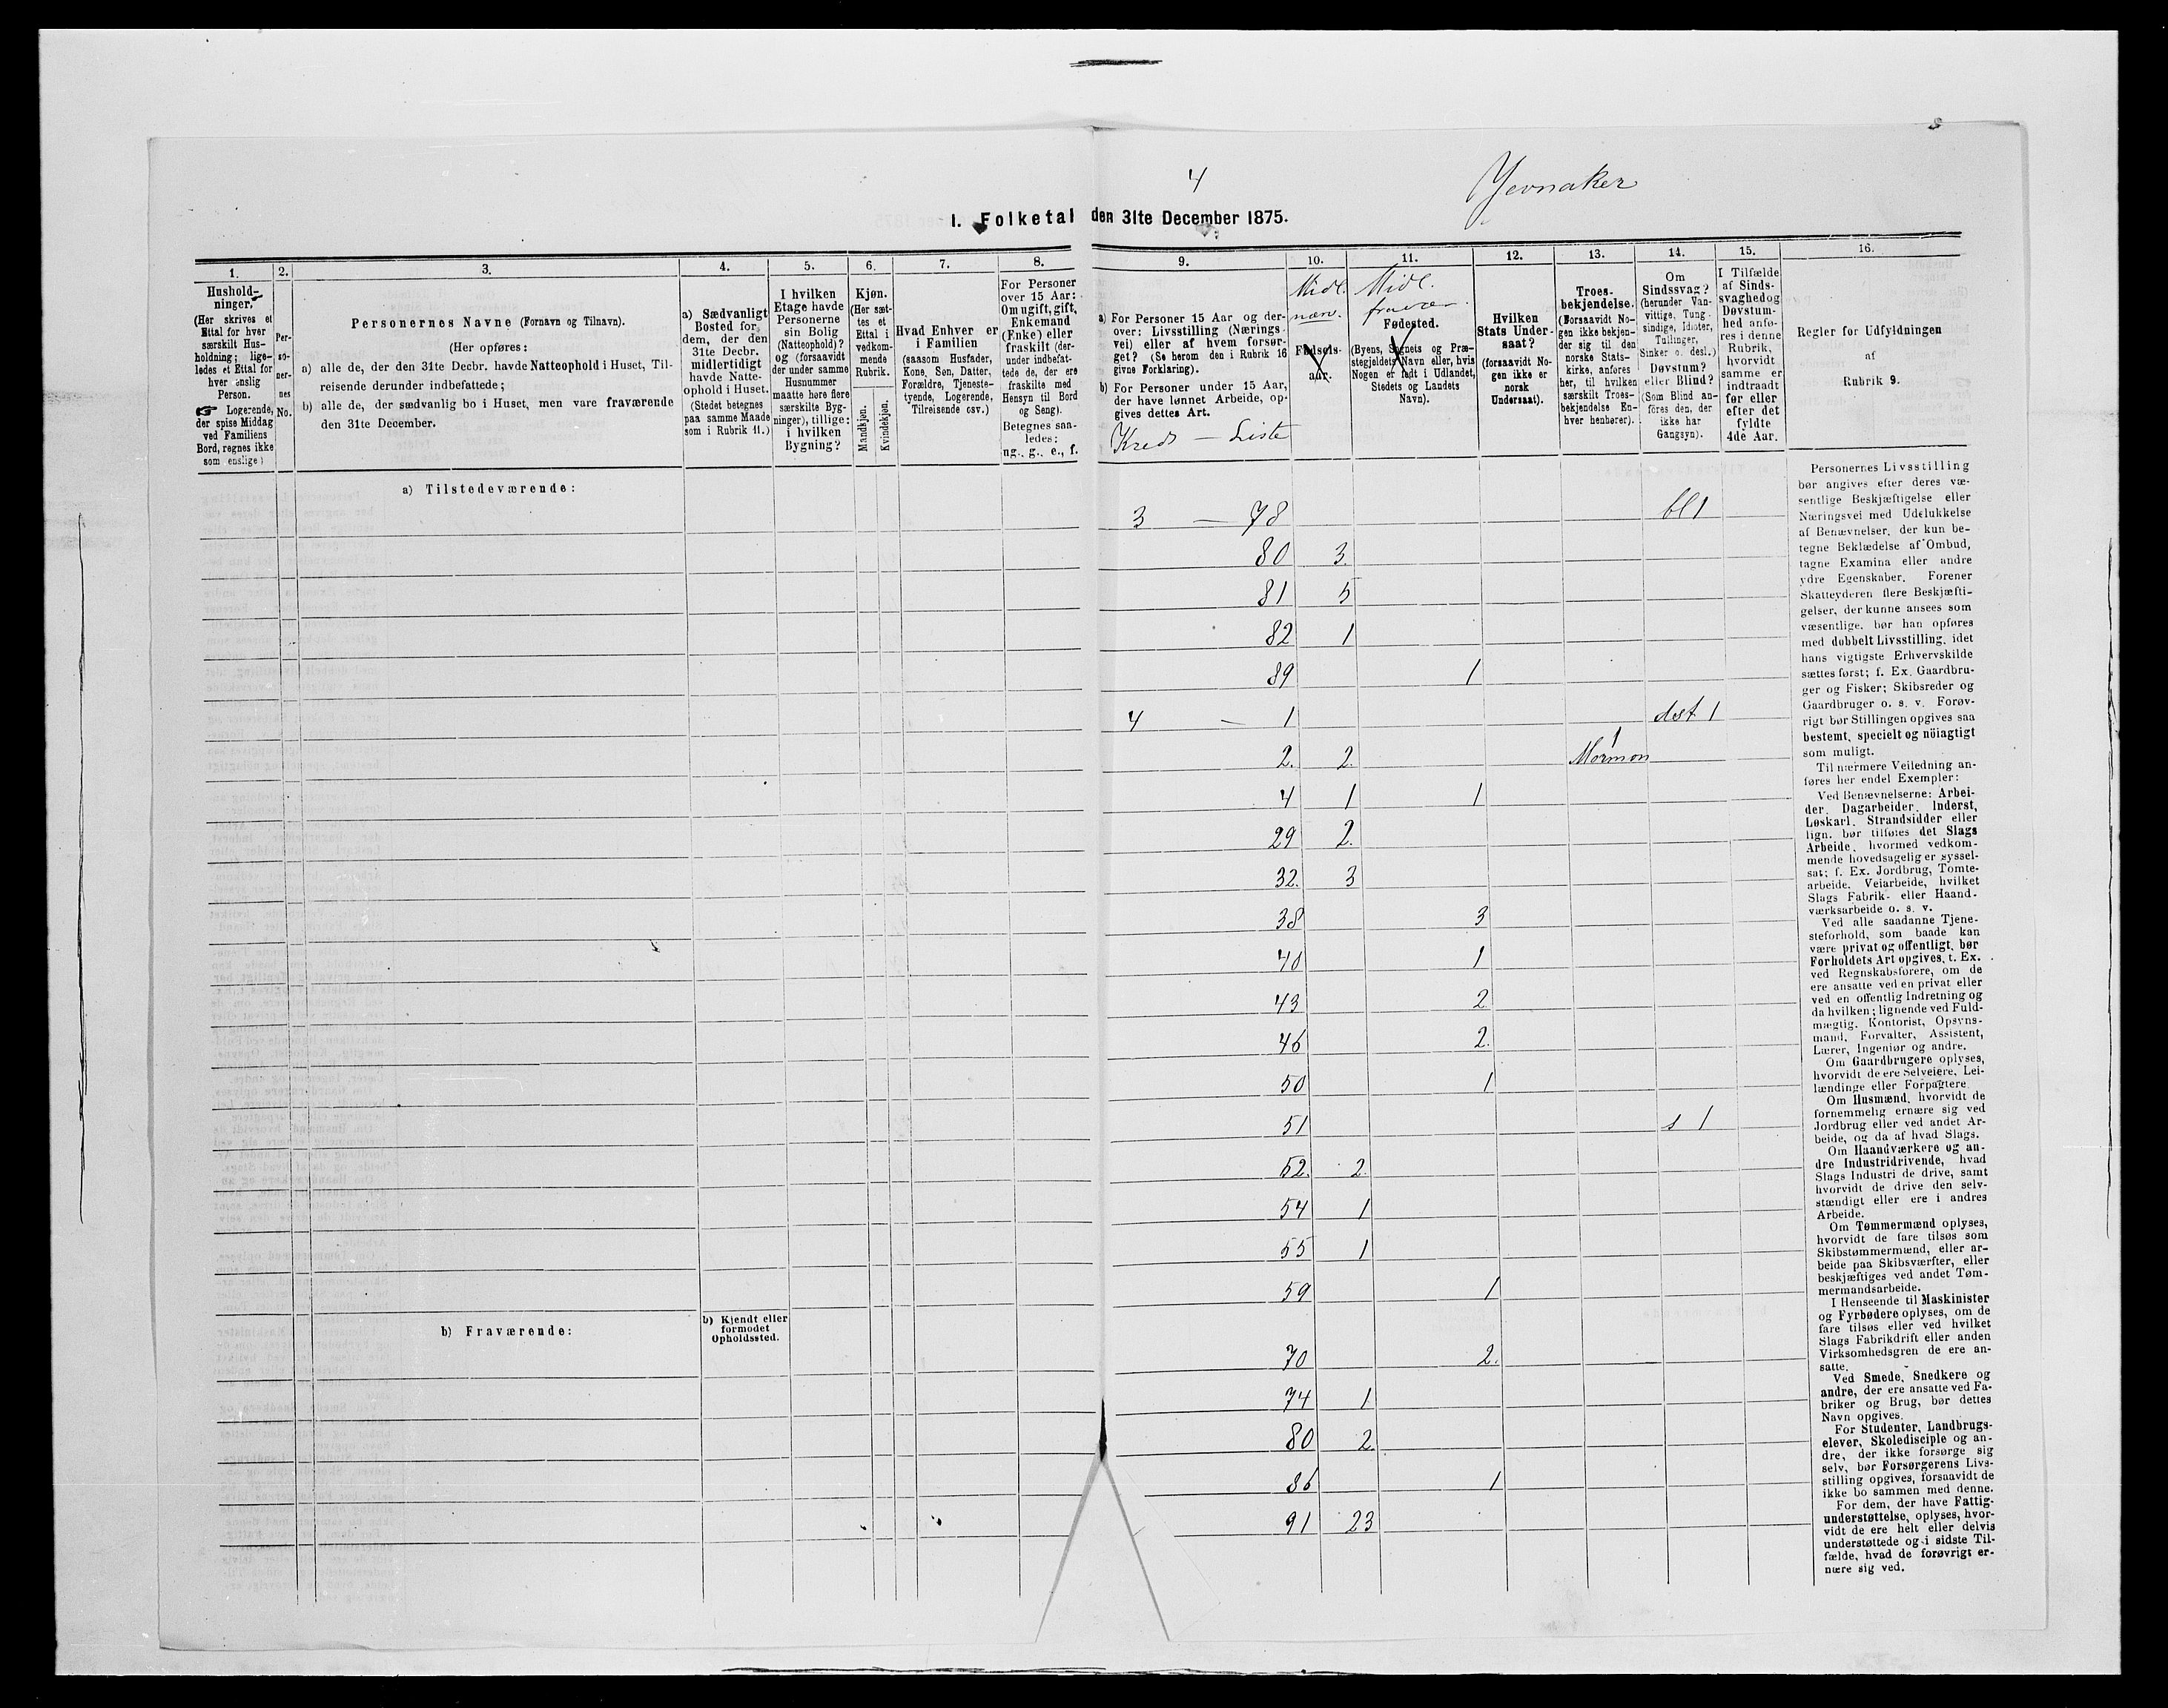 4
Jevnaker
I. Folketal den 31te December 1875.
1.
2.
3.
4.
5.
6.
7.
8.
9.
10.
11.
12.
13.
14.
15.
16.
Hushold-
ninger.
(Her skrives et
Ettal for hver
særskilt Hus-
holdning; lige-
ledes et Ettal for
hver enslig
Person.
☞ Logerende,
der spise Middag
ved Familiens
Bord, regnes ikke
som enslige)
Per-
so-
ner-
nes
No.
Personernes Navne (Fornavn og Tilnavn).
(Her opføres:
a) alle de, der den 31te Decbr. havde Natteophold i Huset, Til-
reisende derunder indbefattede;
b) alle de, der sædvanlig bo i Huset, men vare fraværende
den 31te December.
a) Sædvanligt
Bosted for
dem, der den
31te Decbr.
midlertidigt
havde Natte-
ophold i Huset.
(Stedet betegnes
paa samme Maade
som i Rubrik 11.)
I hvilken
Etage havde
Personerne
sin Bolig
(Natteophold)?
og (forsaavidt
der under samme
Husnummer
maatte høre flere
særskilte Byg-
ninger), tillige:
i hvilken
Bygning?
Kjøn.
(Her sæt-
tes et
Ettal i
vedkom-
mende
Rubrik.
Mandkjøn.
Kvindekjøn.
Hvad Enhver er
i Familien
(saasom Husfader,
Kone, Søn, Datter,
Forældre, Tjeneste-
tyende, Logerende,
Tilreisende osv.)
For Personer
over 15 Aar:
Om ugift, gift,
Enkemand
(Enke) eller
fraskilt (der-
under indbefat-
tede de, der ere
fraskilte med
Hensyn til Bord
og Seng).
Betegnes saa-
ledes:
ug., g., e., f.
a) For Personer 15 Aar og der-
over: Livsstilling (Nærings-
vei) eller af hvem forsør-
get? (Se herom den i Rubrik 16
givne Forklaring).
b) For Personer under 15 Aar,
der have lønnet Arbeide, op-
gives dettes Art.
Kreds — Liste
Midl.
nærv.
Fødsels-
aar.
Midl.
fravær.
Fødested.
(Byens, Sognets og Præ-
stegjeldets Navn eller, hvis
Nogen er født i Udlandet,
Stedets og Landets
Navn).
Hvilken
Stats Under-
saat?
(forsaavidt No-
gen ikke er
norsk
Undersaat).
Troes-
bekjendelse.
(Forsaavidt No-
gen ikke bekjen-
der sig til den
norske Stats-
kirke, anføres
her, til hvilken
særskilt Troes-
bekjendelse En-
hver henhører).
Om
Sindssvag?
(herunder Van-
vittige, Tung-
sindige, Idioter,
Tullinger,
Sinker o. desl.)
Døvstum?
eller Blind?
(Som Blind an-
føres den, der
ikke har
Gangsyn).
I Tilfælde
af Sinds-
svaghed og
Døvstum-
hed anfø-
res i denne
Rubrik,
hvorvidt
samme er
indtraadt
før eller
efter det
fyldte
4de Aar.
Regler for Udfyldningen
af
Rubrik 9.
a) Tilstedeværende:
3 — 78 bl 1
80 3.
81 5
82 1
89 1
4 — 1 dst 1
2. 2. 1 Mormon
4 1 1
29 2.
32. 3
38 3
40 1
43 2
46 2.
50 1
51 s 1
52. 2.
54 1
55 1
59 1
b) Fraværende:
b) Kjendt eller
formodet
Opholdssted.
70 2.
74 1
80 2
86 1
91 23
Personernes Livsstilling
bør angives efter deres væ-
sentlige Beskjæftigelse eller
Næringsvei med Udelukkelse
af Benævnelser, der kun be-
tegne Beklædelse af Ombud,
tagne Examina eller andre
ydre Egenskaber. Forener
Skatteyderen flere Beskjæfti-
gelser, der kunne ansees som
væsentlige, bør han opføres
med dobbelt Livsstilling, idet
hans vigtigste Erhvervskilde
sættes først; f. Ex. Gaardbru-
ger og Fisker; Skibsreder og
Gaardbruger o. s. v. Forøv-
rigt bør Stillingen opgives saa
bestemt, specielt og nöiagtigt
som muligt.
Til nærmere Veiledning an-
føres her endel Exempler:
Ved Benævnelserne: Arbei-
der, Dagarbeider, Inderst,
Løskarl, Strandsidder eller
lign. bør tilføies det Slags
Arbeide, hvormed vedkom-
mende hovedsagelig er syssel-
sat; f. Ex. Jordbrug, Tomte-
arbeide, Veiarbeide, hvilket
Slags Fabrik- eller Haand-
værksarbeide o. s. v.
Ved alle saadanne Tjene-
steforhold, som baade kan
være privat og offentligt, bør
Forholdets Art opgives, t. Ex.
ved Regnskabsførere, om de
ere ansatte ved en privat eller
ved en offentlig Indretning og
da hvilken; lignende ved Fuld-
mægtig, Kontorist, Opsyns-
mand, Forvalter, Assistent,
Lærer, Ingeniør og andre.
Om Gaardbrugere oplyses,
hvorvidt de ere Selveiere, Lei-
lændinge eller Forpagtere.
Om Husmænd, hvorvidt de
fornemmelig ernære sig ved
Jordbrug eller ved andet Ar-
beide, og da af hvad Slags.
Om Haandværkere og an-
dre Industridrivende, hvad
Slags Industri de drive, samt
hvorvidt de drive den selv-
stændigt eller ere i andres
Arbeide.
Om Tømmermænd oplyses,
hvorvidt de fare tilsøs som
Skibstømmermænd, eller ar-
beide paa Skibsværfter, eller
beskjæftiges ved andet Tøm-
mermandsarbeide.
I Henseende til Maskinister
og Fyrbødere oplyses, om de
fare tilsøs eller ved hvilket
Slags Fabrikdrift eller anden
Virksomhedsgren de ere an-
satte.
Ved Smede, Snedkere og
andre, der ere ansatte ved Fa-
briker og Brug, bør dettes
Navn opgives.
For Studenter, Landbrugs-
elever, Skoledisciple og an-
dre, der ikke forsørge sig
selv, bør Forsørgerens Livs-
stilling opgives, forsaavidt de
ikke bo sammen med denne.
For dem, der have Fattig-
understøttelse, oplyses, hvor-
vidt de ere helt eller delvis
understøttede og i sidste Til-
fælde, hvad de forøvrigt er-
nære sig ved.